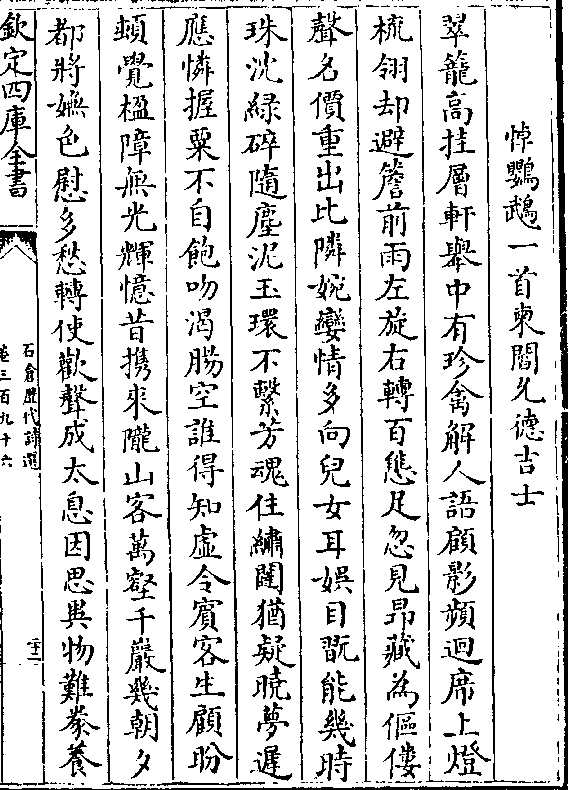 悼鸚鵡一首柬閻允德吉士
翠籠高挂層軒舉中有珍禽解人語顧影頻迴席上燈
梳翎却避簷前雨左旋右轉百態足忽見昂藏為傴僂
聲名價重出比隣婉孌情多向兒女耳娛目翫能幾時
珠沈綠碎隨塵泥玉環不繫芳魂住繡闥猶疑曉夢遲
應憐握粟不自飽吻渴腸空誰得知虛令賓客生顧盼
頓覺楹障無光輝憶昔携來隴山客萬壑千巖幾朝夕
都將嫵色慰多愁轉使歡聲成太息因思異物難豢養
欽定四庫全書
石倉歷代詩選
卷三百九十六
二十二